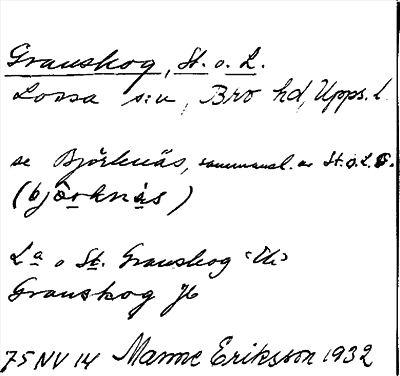 Granskog, St. o. L.
Lossa sn, Bro hd, Upps. l.
se Björknäs, sammansl. av St. o. L. G.
(bjö̀rknäs)
La o St. Granskog
Granskog Jb
75 NV 14 Manne Eriksson 1932